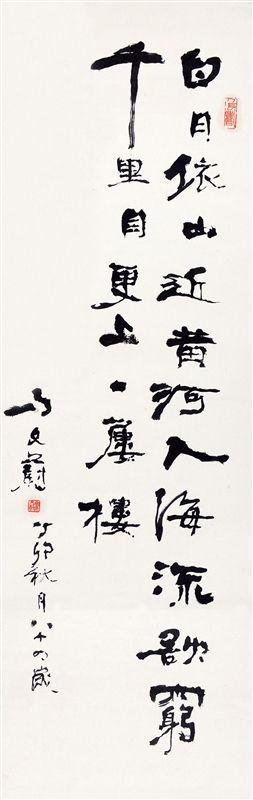 白日依山近黄河入海流欲窮
千里目更上一層樓
马文蔚
丁卯秋月八十四歲